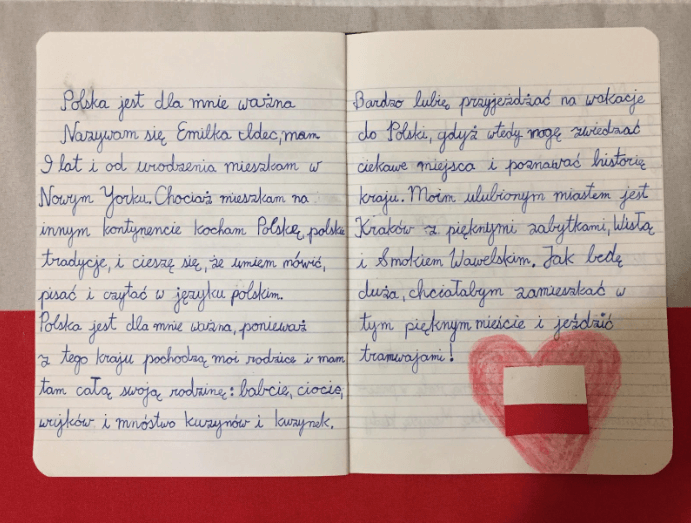 Polska jest dla mnie ważna
Nazywam się Emilka Idec, mam
9 lat i od urodzenia mieszkam w
Nowym Yorku. Chociaż mieszkam na
innym kontynencie kocham Polskę, polskie
tradycje, i cieszę się, że umiem mówić,
pisać i czytać w języku polskim.
Polska jest dla mnie ważna, ponieważ
z tego kraju pochodzą moi rodzice i mam
tam całą swoją rodzinę: babcie, ciocie,
wujków i mnóstwo kuzynów i kuzynek.
Bardzo lubię przyjeżdżać na wakacje
do Polski, gdyż wtedy mogę zwiedzać
ciekawe miejsca i poznawać historię
kraju. Moim ulubionym miastem jest
Kraków z pięknymi zabytkami, Wisłą
i Smokiem Wawelskim. Jak będę
duża, chciałabym zamieszkać w
tym pięknym mieście i jeździć
tramwajami!